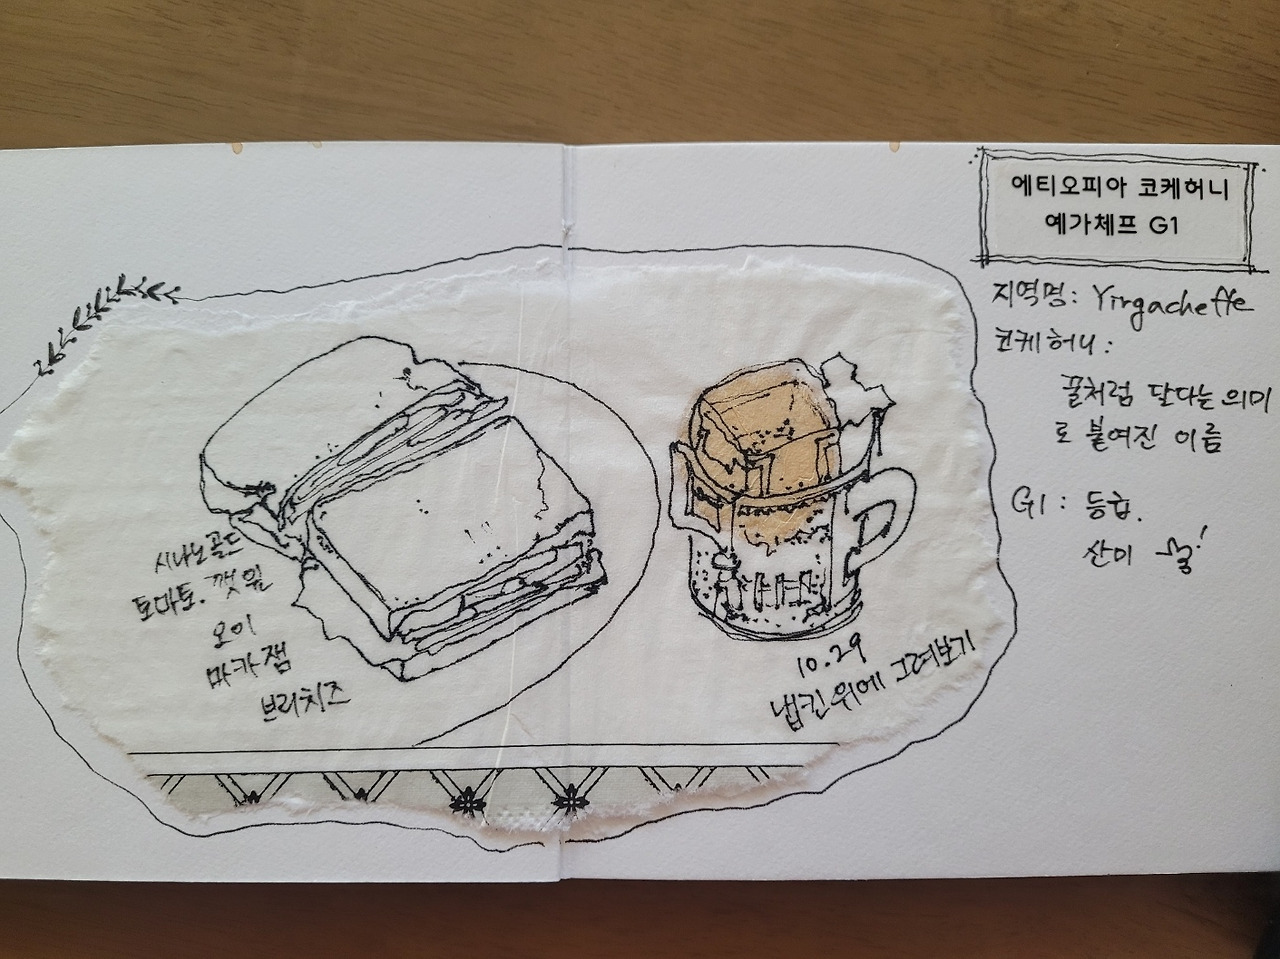 에티오피아 코케허니
예가체프 G1
지역명: Yirgacheffe
코케허니:
꿀처럼 달다는 의미
로 붙여진 이름
G1: 등급.
산미
시나노골드
토마토. 깻잎
오이
마카잼
브리치즈
10.29
냅킨위에 그려보기